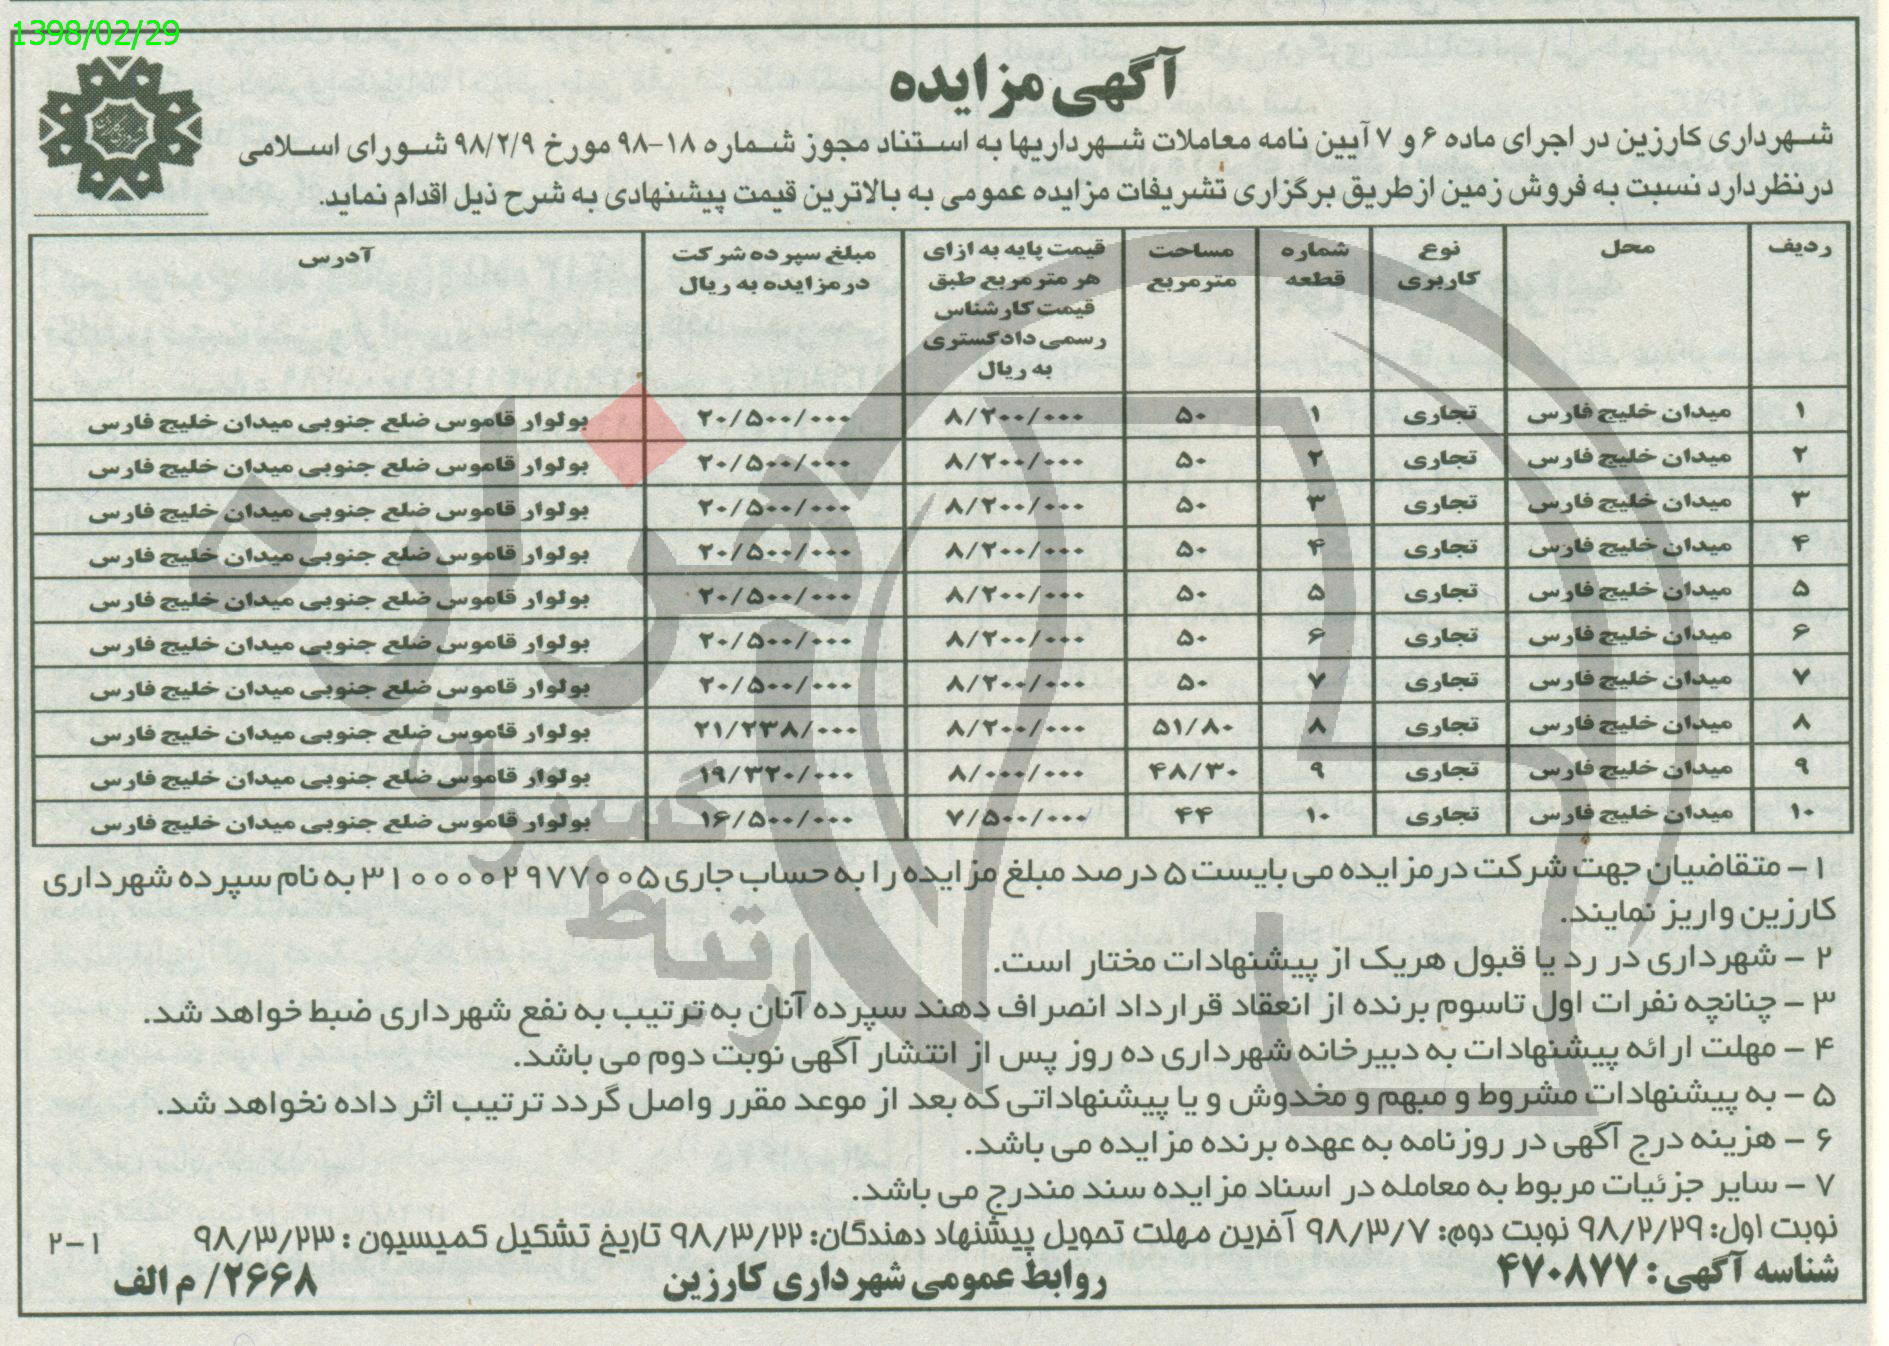 1398/02/29
آگهی مزایده
شهرداری کارزین در اجرای ماده ۶ و ۷ آیین نامه معاملات شهرداریها به استناد مجوز شماره ۱۸-۹۸ مورخ ۹۸/۲/۹ شورای اسلامی
درنظردارد نسبت به فروش زمین ازطریق برگزاری تشریفات مزایده عمومی به بالاترین قیمت پیشنهادی به شرح ذیل اقدام نماید.
ردیف محل نوع کاربری شماره قطعه مساحت مترمربع قیمت پایه به ازای هر مترمربع طبق قیمت کارشناس رسمی دادگستری به ریال مبلغ سپرده شرکت درمزایده به ریال آدرس
۱ میدان خلیج فارس تجاری ۱ ۵۰ ۸/۲۰۰/۰۰۰ ۲۰/۵۰۰/۰۰۰ بولوار قاموس ضلع جنوبی میدان خلیج فارس
۲ میدان خلیج فارس تجاری ۲ ۵۰ ۸/۲۰۰/۰۰۰ ۲۰/۵۰۰/۰۰۰ بولوار قاموس ضلع جنوبی میدان خلیج فارس
۳ میدان خلیج فارس تجاری ۳ ۵۰ ۸/۲۰۰/۰۰۰ ۲۰/۵۰۰/۰۰۰ بولوار قاموس ضلع جنوبی میدان خلیج فارس
۴ میدان خلیج فارس تجاری ۴ ۵۰ ۸/۲۰۰/۰۰۰ ۲۰/۵۰۰/۰۰۰ بولوار قاموس ضلع جنوبی میدان خلیج فارس
۵ میدان خلیج فارس تجاری ۵ ۵۰ ۸/۲۰۰/۰۰۰ ۲۰/۵۰۰/۰۰۰ بولوار قاموس ضلع جنوبی میدان خلیج فارس
۶ میدان خلیج فارس تجاری ۶ ۵۰ ۸/۲۰۰/۰۰۰ ۲۰/۵۰۰/۰۰۰ بولوار قاموس ضلع جنوبی میدان خلیج فارس
۷ میدان خلیج فارس تجاری ۷ ۵۰ ۸/۲۰۰/۰۰۰ ۲۰/۵۰۰/۰۰۰ بولوار قاموس ضلع جنوبی میدان خلیج فارس
۸ میدان خلیج فارس تجاری ۸ ۵۱/۸۰ ۸/۲۰۰/۰۰۰ ۲۱/۲۳۸/۰۰۰ بولوار قاموس ضلع جنوبی میدان خلیج فارس
۹ میدان خلیج فارس تجاری ۹ ۴۸/۳۰ ۸/۰۰۰/۰۰۰ ۱۹/۳۲۰/۰۰۰ بولوار قاموس ضلع جنوبی میدان خلیج فارس
۱۰ میدان خلیج فارس تجاری ۱۰ ۴۴ ۷/۵۰۰/۰۰۰ ۱۶/۵۰۰/۰۰۰ بولوار قاموس ضلع جنوبی میدان خلیج فارس
۱ – متقاضیان جهت شرکت درمزایده می بایست ۵ درصد مبلغ مزایده را به حساب جاری ۳۱۰۰۰۰۲۹۷۷۰۰۵ به نام سپرده شهرداری
کارزین واریز نمایند.
۲ – شهرداری در رد یا قبول هریک از پیشنهادات مختار است.
۳ – چنانچه نفرات اول تاسوم برنده از انعقاد قرارداد انصراف دهند سپرده آنان به ترتیب به نفع شهرداری ضبط خواهد شد.
۴ – مهلت ارائه پیشنهادات به دبیرخانه شهرداری ده روز پس از انتشار آگهی نوبت دوم می باشد.
۵ – به پیشنهادات مشروط و مبهم و مخدوش و یا پیشنهاداتی که بعد از موعد مقرر واصل گردد ترتیب اثر داده نخواهد شد.
۶ – هزینه درج آگهی در روزنامه به عهده برنده مزایده می باشد.
۷ – سایر جزئیات مربوط به معامله در اسناد مزایده سند مندرج می باشد.
نوبت اول: ۹۸/۲/۲۹ نوبت دوم: ۹۸/۳/۷ آخرین مهلت تحویل پیشنهاد دهندگان: ۹۸/۳/۲۲ تاریخ تشکیل کمیسیون : ۹۸/۳/۲۳ ۲-۱
شناسه آگهی: ۴۷۰۸۷۷ روابط عمومی شهرداری کارزین ۲۶۶۸/ م الف